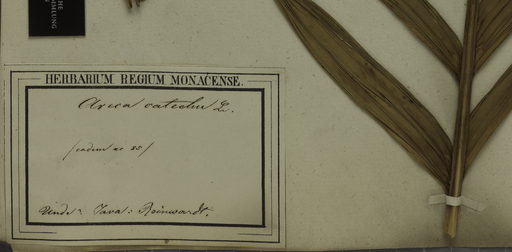 HERBARIUM REGIUM MONACENSE.
Areca catechu L.
/eadem ac 85/
Unde: Java: Reinwardt.